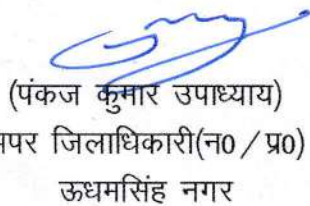 (पंकज कुमार उपाध्याय)
अपर जिलाधिकारी(न0/प्र0)
ऊधमसिंह नगर